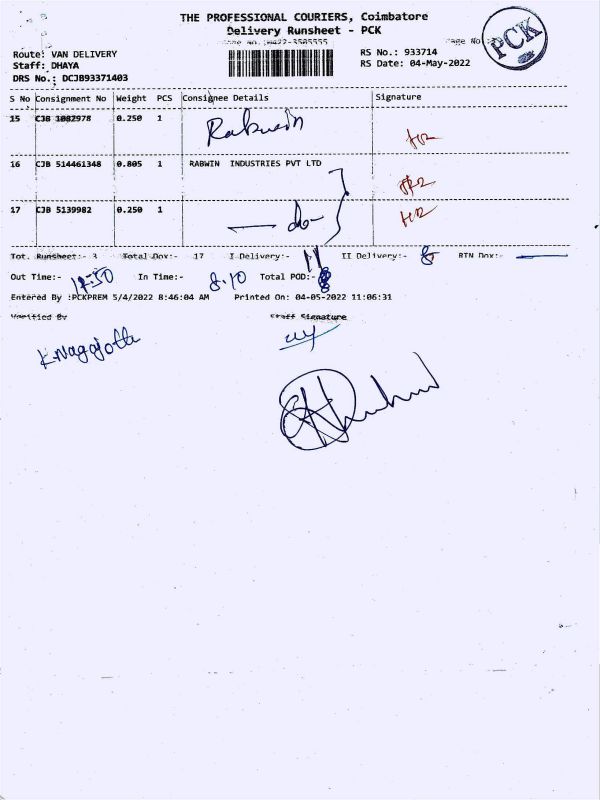 THE PROFESSIONAL COURIERS, Coimbatore
Delivery Runsheet - PCK
Phone No.:0422-3505555 Page No
PCK
Route: VAN DELIVERY RS No.: 933714
Staff: DHAYA RS Date: 04-May-2022
DRS No.: DCJB93371403
S No Consignment No Weight PCS Consignee Details Signature
15 CJB 1082978 0.250 1 Rabwin
16 CJB 514461348 0.805 1 RABWIN INDUSTRIES PVT LTD
17 CJB 5139982 0.250 1 — do-
Tot. RunSheet:- 3 Total Dox:- 17 I Delivery:- 11 II Delivery:- 6 RTN Dox:-
Out Time:- In Time:- 8.10 Total POD:-
Entered By :PCKPREM 5/4/2022 8:46:04 AM Printed On: 04-05-2022 11:06:31
Verified By Staff Signature